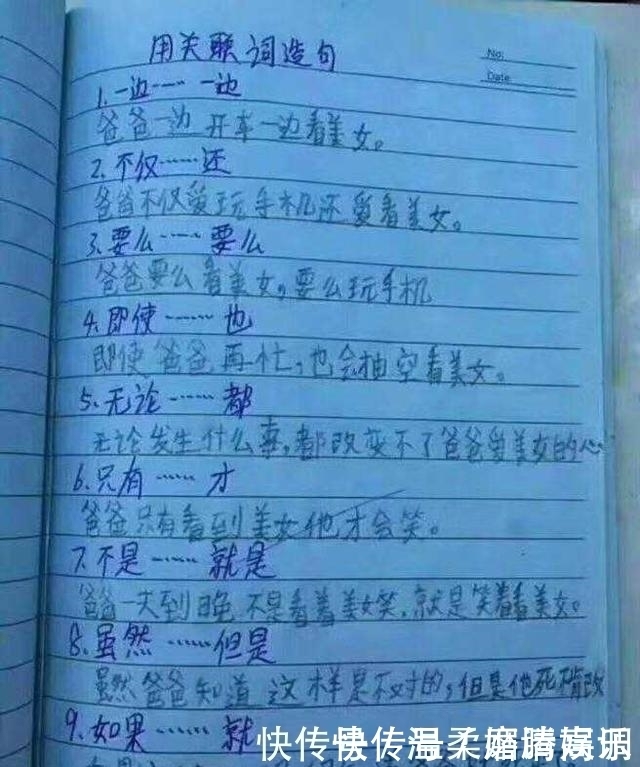 用关联词造句
No:
Date
1.一边……一边
爸爸一边开车一边看美女。
2.不仅……还
爸爸不仅爱玩手机还爱看美女。
3.要么……要么
爸爸要么看美女,要么玩手机
4.即使……也
即使爸爸再忙,也会抽空看美女。
5.无论……都
无论发生什么事,都改变不了爸爸爱美女的心
6.只有……才
爸爸只有看到美女他才会笑。
7.不是……就是
爸爸一天到晚不是看着美女笑,就是笑着看美女。
8.虽然……但是
虽然爸爸知道这样是不对的,但是他死不肯改
9.如果……就
快传